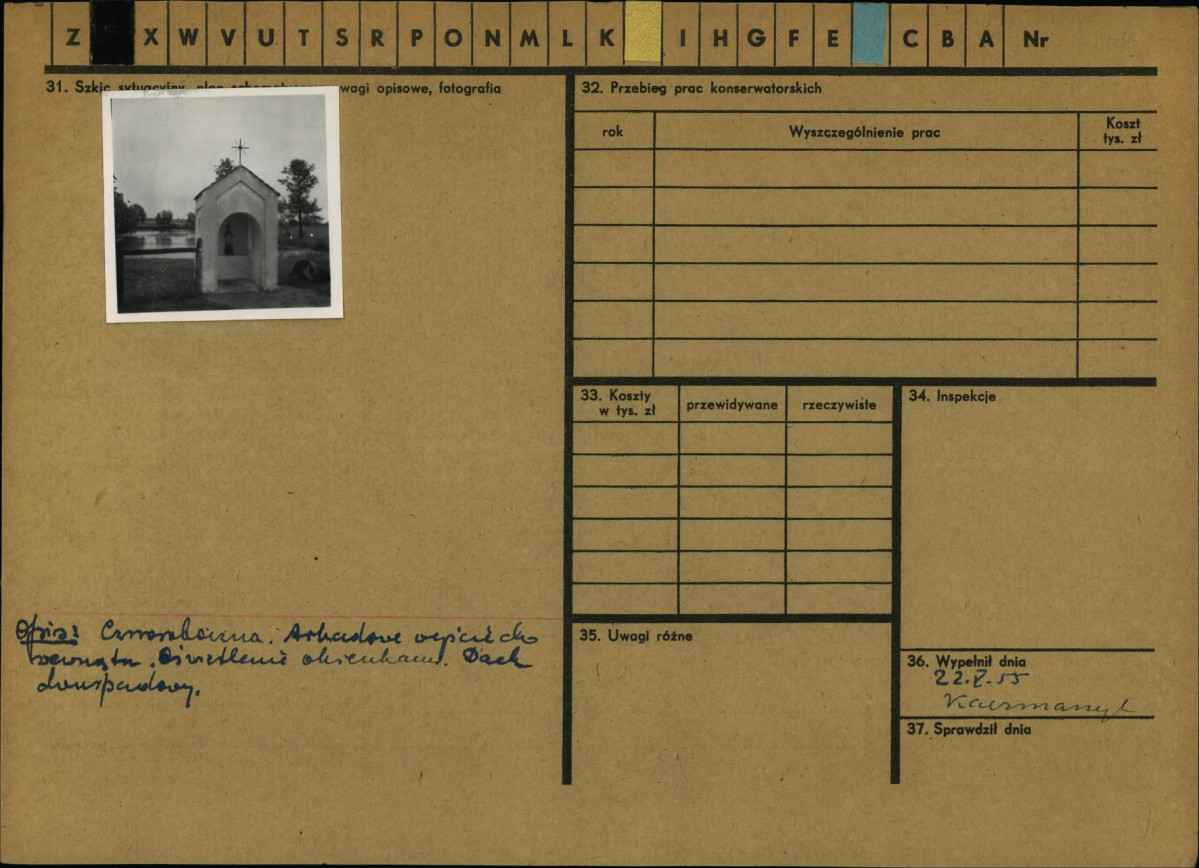 Z X W V U T S R P O N M L K I H G F E C B A Nr
31. Szkic sytuacyjny, plan wagi opisowe, fotografia
32. Przebieg prac konserwatorskich
rok Wyszczególnienie prac Koszt tys. zł
33. Koszty w tys. zł przewidywane rzeczywiste
34. Inspekcje
Opis: Czworoboczna. Arkadowe wejście do
wewnątrz. Oświetlenie okienkami. Dach
dwuspadowy.
35. Uwagi różne
36. Wypełnił dnia
22.V.55
37. Sprawdził dnia